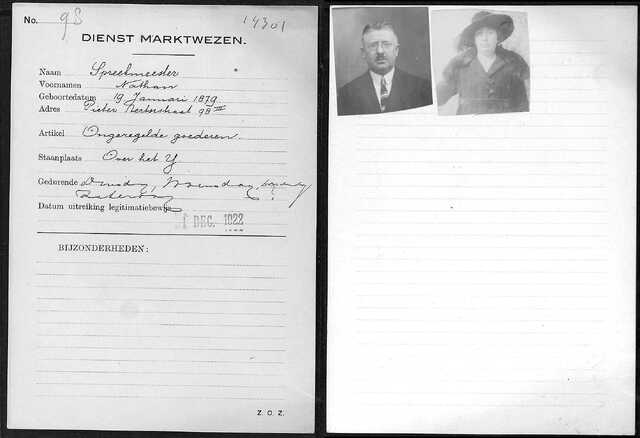 No. 98 14301
DIENST MARKTWEZEN.
Naam Spreekmeester
Voornamen Nathan
Geboortedatum 19 Januari 1879
Adres Pieter 98 III
Artikel Ongeregelde goederen.
Staanplaats Over het Y
Gedurende Dinsdag, Woensdag, Donderdag
Zaterdag
Datum uitreiking legitimatiebewijs
1 DEC. 1922
BIJZONDERHEDEN:
Z. O. Z.